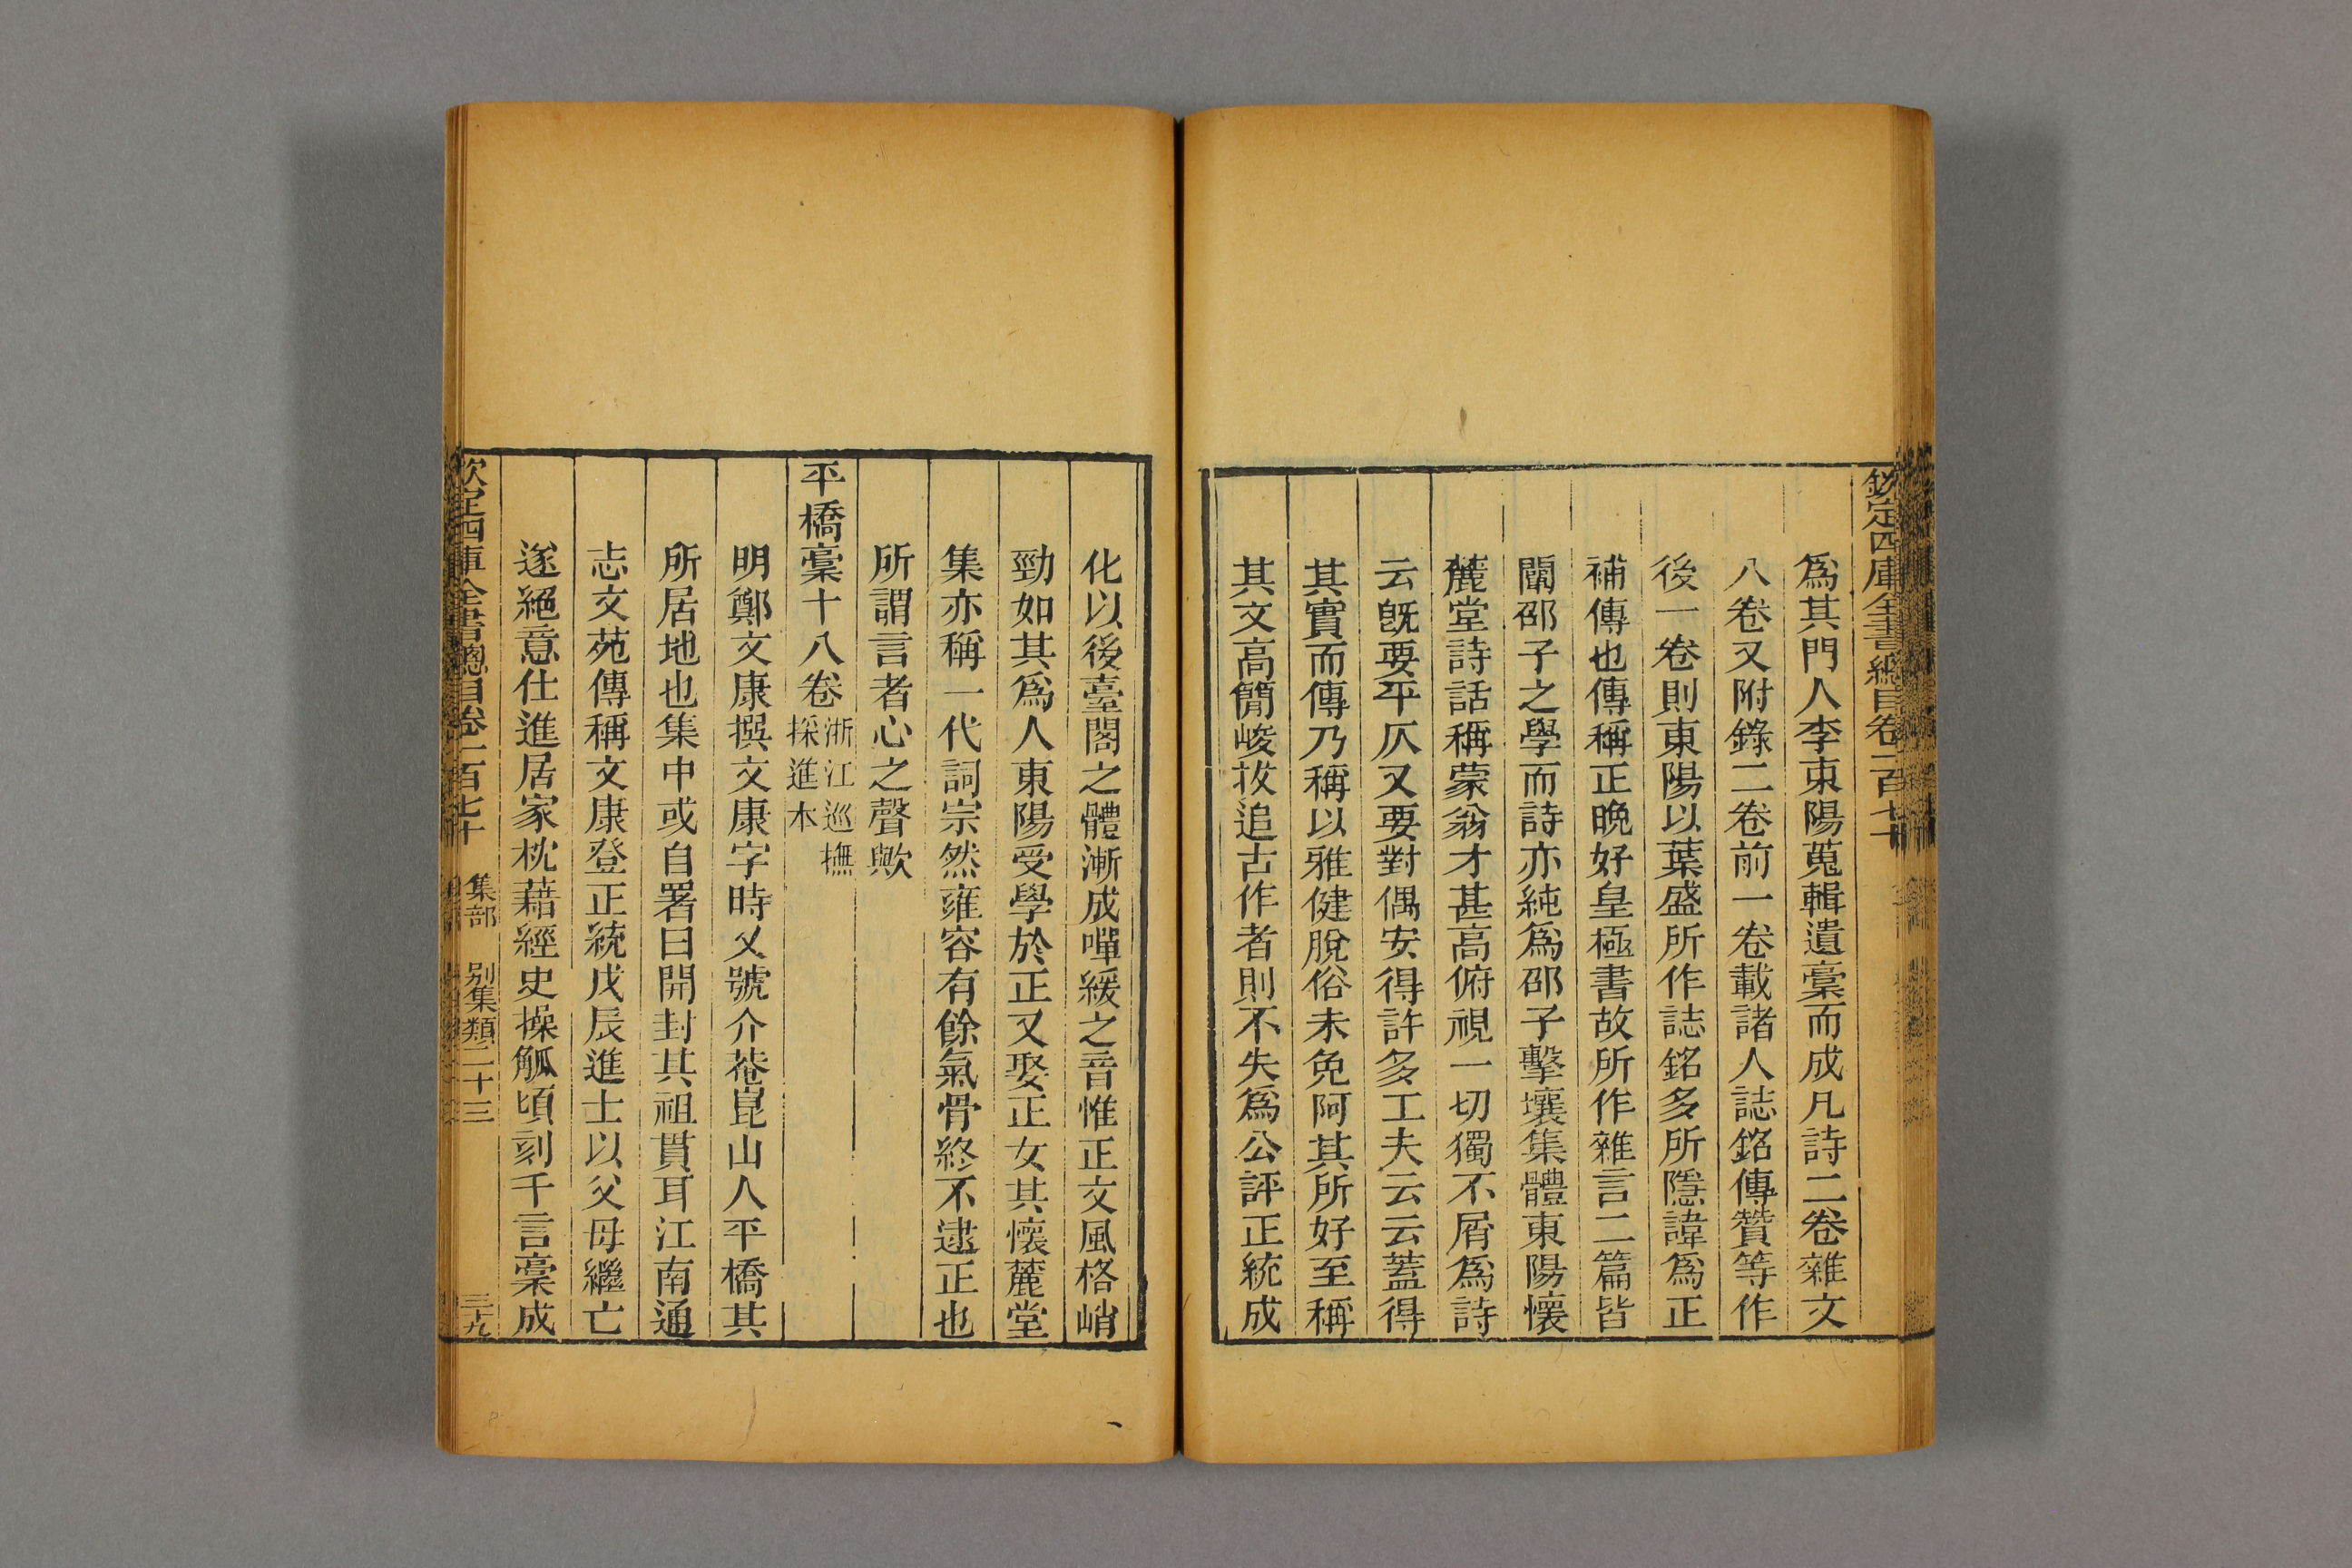 欽定四庫全書總目卷一百七十
爲其門人李東陽蒐輯遺藁而成凡詩二卷雜文
八卷又附錄二卷前一卷載諸人誌銘傳贊等作
後一卷則東陽以葉盛所作誌銘多所隱諱爲正
補傳也傳稱正晚好皇極書故所作雜言二篇皆
闡邵子之學而詩亦純爲邵子擊壤集體東陽懷
麓堂詩話稱蒙翁才甚高俯視一切獨不屑爲詩
云旣要平仄又要對偶安得許多工夫云云蓋得
其實而傳乃稱以雅健脫俗未免阿其所好至稱
其文高簡峻拔追古作者則不失爲公評正統成
化以後臺閣之體漸成嘽緩之音惟正文風格峭
勁如其爲人東陽受學於正又娶正女其懷麓堂
集亦稱一代詞宗然雍容有餘氣骨終不逮正也
所謂言者心之聲歟
平橋藁十八卷 浙江巡撫
採進本
明鄭文康撰文康字時乂號介菴崑山人平橋其
所居地也集中或自署曰開封其祖貫耳江南通
志文苑傳稱文康登正統戊辰進士以父母繼亡
遂絕意仕進居家枕藉經史操觚頃刻千言藁成
欽定四庫全書總目卷一百七十 集部 別集類二十三 三十九